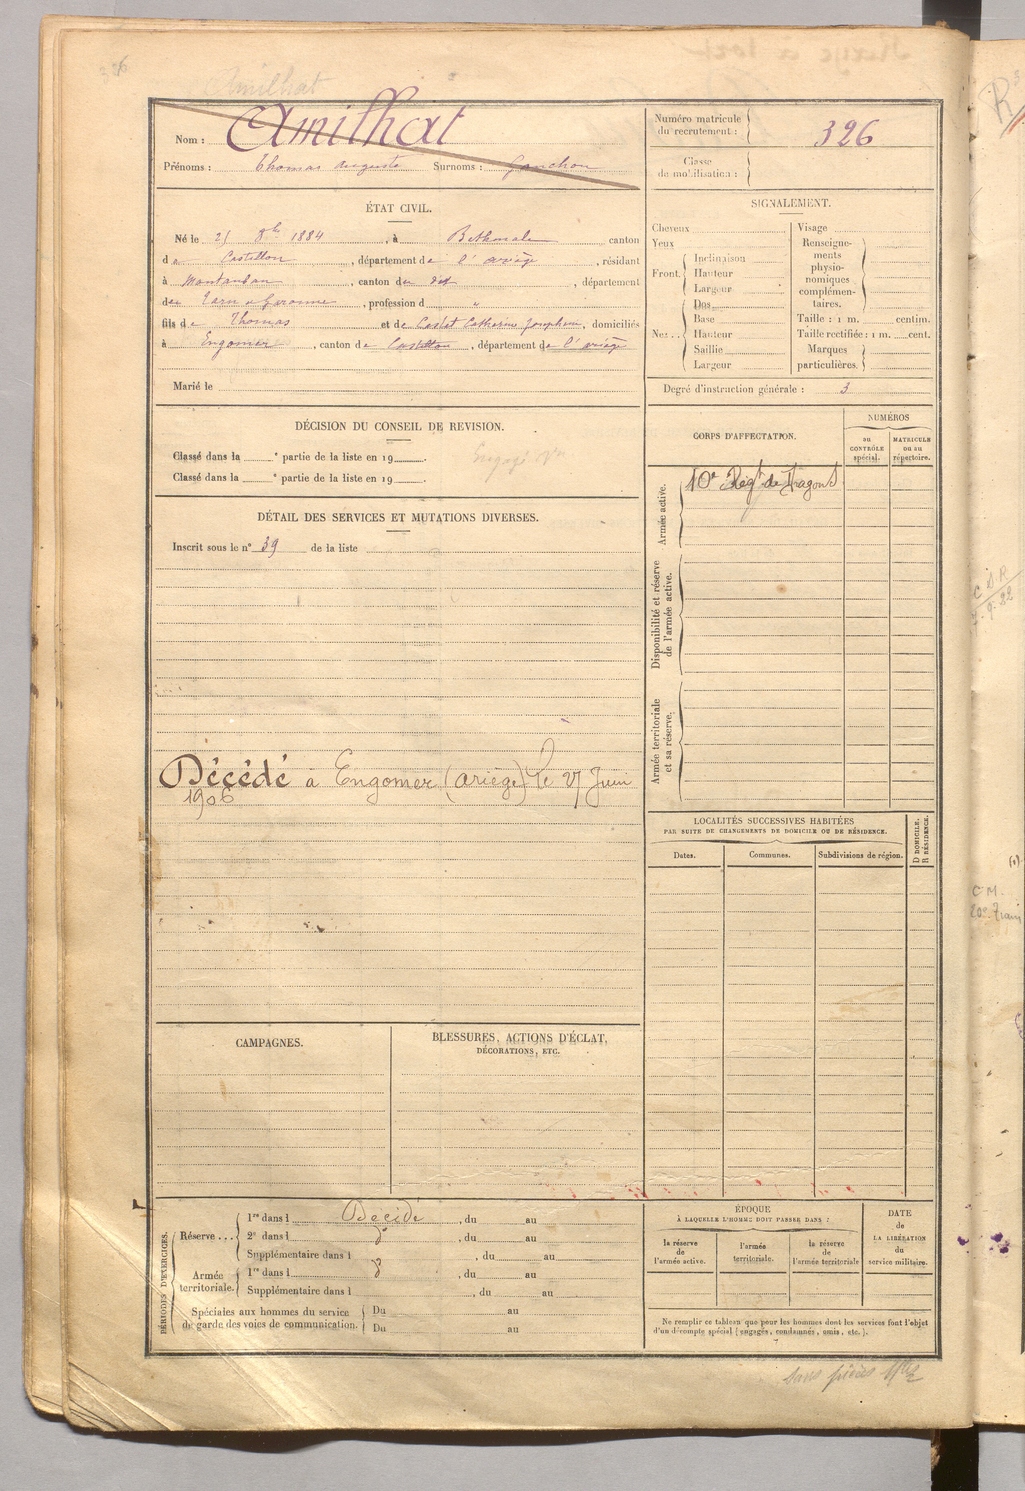 326
Amilhat
Nom : Amilhat
Prénoms : Thomas Auguste Surnoms : Gouchon
Numéro matricule du recrutement : 326
Classe de mobilisation :
ÉTAT CIVIL.
Né le 21 8bre 1884, à Bethmale canton
de Castillon, département de l'Ariège, résidant
à Montauban, canton du dit, département
de Tarn et Garonne, profession d "
fils de Thomas et de Castet Catherine Josephine, domiciliés
à Engomer, canton de Castillon, département de l'Ariège
Marié le
SIGNALEMENT.
Cheveux
Yeux
Front. Inclinaison
Hauteur
Largeur
Nez . . Dos
Base
Hauteur
Saillie
Largeur
Visage
Renseignements physionomiques complémentaires.
Taille : 1 m. centim.
Taille rectifiée : 1 m. cent.
Marques particulières.
Degré d'instruction générale : 3
DÉCISION DU CONSEIL DE REVISION.
Classé dans la e partie de la liste en 19 .
Classé dans la e partie de la liste en 19 .
Engagé Vre
DÉTAIL DES SERVICES ET MUTATIONS DIVERSES.
Inscrit sous le n° 39 de la liste
Décédé à Engomer (Ariège) le 27 Juin
1906
CORPS D'AFFECTATION.
NUMÉROS
au CONTRÔLE spécial.
MATRICULE ou au répertoire.
Armée active.
10e Régt de Dragons
Disponibilité et réserve de l'armée active.
Armée territoriale et sa réserve.
LOCALITÉS SUCCESSIVES HABITÉES
PAR SUITE DE CHANGEMENTS DE DOMICILE OU DE RÉSIDENCE.
Dates.
Communes.
Subdivisions de région.
D DOMICILE.
R RÉSIDENCE.
CAMPAGNES.
BLESSURES, ACTIONS D'ÉCLAT,
DÉCORATIONS, ETC.
PÉRIODES D'EXERCICES.
Réserve . . . 1re dans l Décédé, du au
2e dans l , du au
Supplémentaire dans l , du au
Armée territoriale. 1re dans l , du au
Supplémentaire dans l , du au
Spéciales aux hommes du service de garde des voies de communication. Du au
Du au
ÉPOQUE
À LAQUELLE L'HOMME DOIT PASSER DANS :
la réserve de l'armée active.
l'armée territoriale.
la réserve de l'armée territoriale
DATE de LA LIBÉRATION du service militaire.
Ne remplir ce tableau que pour les hommes dont les services font l'objet
d'un décompte spécial (engagés, condamnés, omis, etc.).
sans pièces